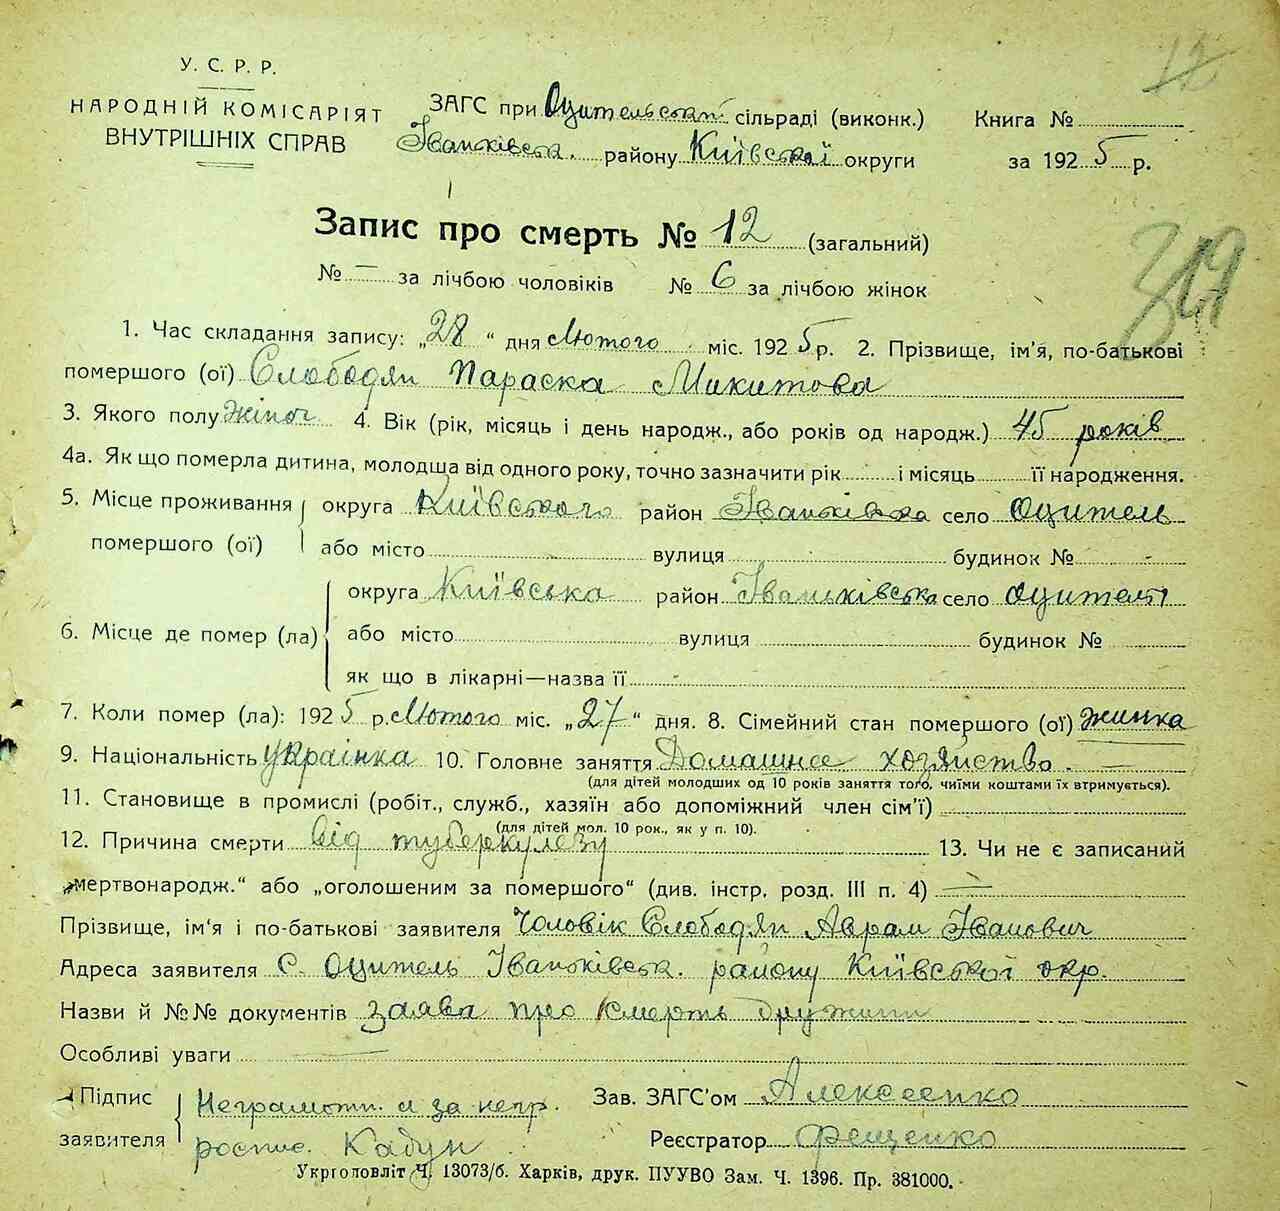 12
У. С. Р. Р.
НАРОДНІЙ КОМІСАРІЯТ
ВНУТРІШНІХ СПРАВ
ЗАГС при Оцительській сільраді (виконк.)
Іваньківськ. району Київської округи
Книга №
за 1925 р.
319
Запис про смерть № 12 (загальний)
№ — за лічбою чоловіків № 6 за лічбою жінок
1. Час складання запису: „28 “ дня Лютого міс. 1925 р. 2. Прізвище, ім'я, по-батькові
помершого (ої) Слободян Параска Микитова
3. Якого полу жіноч 4. Вік (рік, місяць і день народж., або років од народж.) 45 років
4а. Як що померла дитина, молодша від одного року, точно зазначити рік і місяць її народження.
5. Місце проживання округа Київського район Іваньківка село Оцитель
помершого (ої) або місто вулиця будинок №
округа Київська район Іваньківська село Оцителі
6. Місце де помер (ла) або місто вулиця будинок №
як що в лікарні—назва її
7. Коли помер (ла): 1925 р. Лютого міс. „27“ дня. 8. Сімейний стан помершого (ої) жинка
9. Національність Українка 10. Головне заняття Домашнє хозяйство. —
(для дітей молодших од 10 років заняття того, чиїми коштами їх втримується).
11. Становище в промислі (робіт., служб., хазяїн або допоміжний член сім'ї)
(для дітей мол. 10 рок., як у п. 10).
12. Причина смерти від туберкулезу 13. Чи не є записаний
„мертвонародж.“ або „оголошеним за помершого“ (див. інстр. розд. III п. 4) —
Прізвище, ім'я і по-батькові заявителя Чоловік Слободян Аврам Іванович
Адреса заявителя С. Оцитель Іваньківськ. району Київської окр.
Назви й №№ документів заява про смерть дружини
Особливі уваги —
Підпис
заявителя
Неграмотн. а за негр.
роспис. Кадун
Зав. ЗАГС'ом Алексеенко
Реєстратор Фещенко
Укрголовліт Ч. 13073/б. Харків, друк. ПУУВО Зам. Ч. 1396. Пр. 381000.